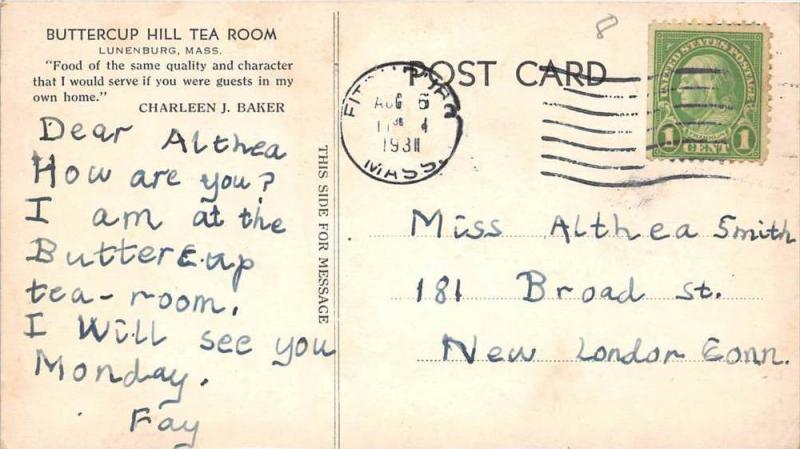 BUTTERCUP HILL TEA ROOM
LUNENBURG, MASS.
"Food of the same quality and character
that I would serve if you were guests in my
own home."
CHARLEEN J. BAKER
Dear Althea
How are you?
I am at the
Buttercup
tea-room.
I Will see you
Monday.
Fay
THIS SIDE FOR MESSAGE
POST CARD
AUG 6
1931
MASS.
UNITED STATES POSTAGE
1 CENT 1
Miss Althea Smith
181 Broad st.
New London Conn.